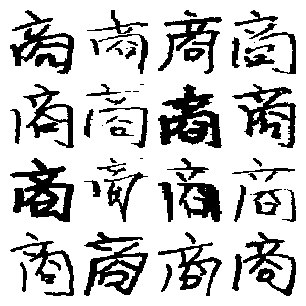 商商商商
商商商商
商商商商
商商商商